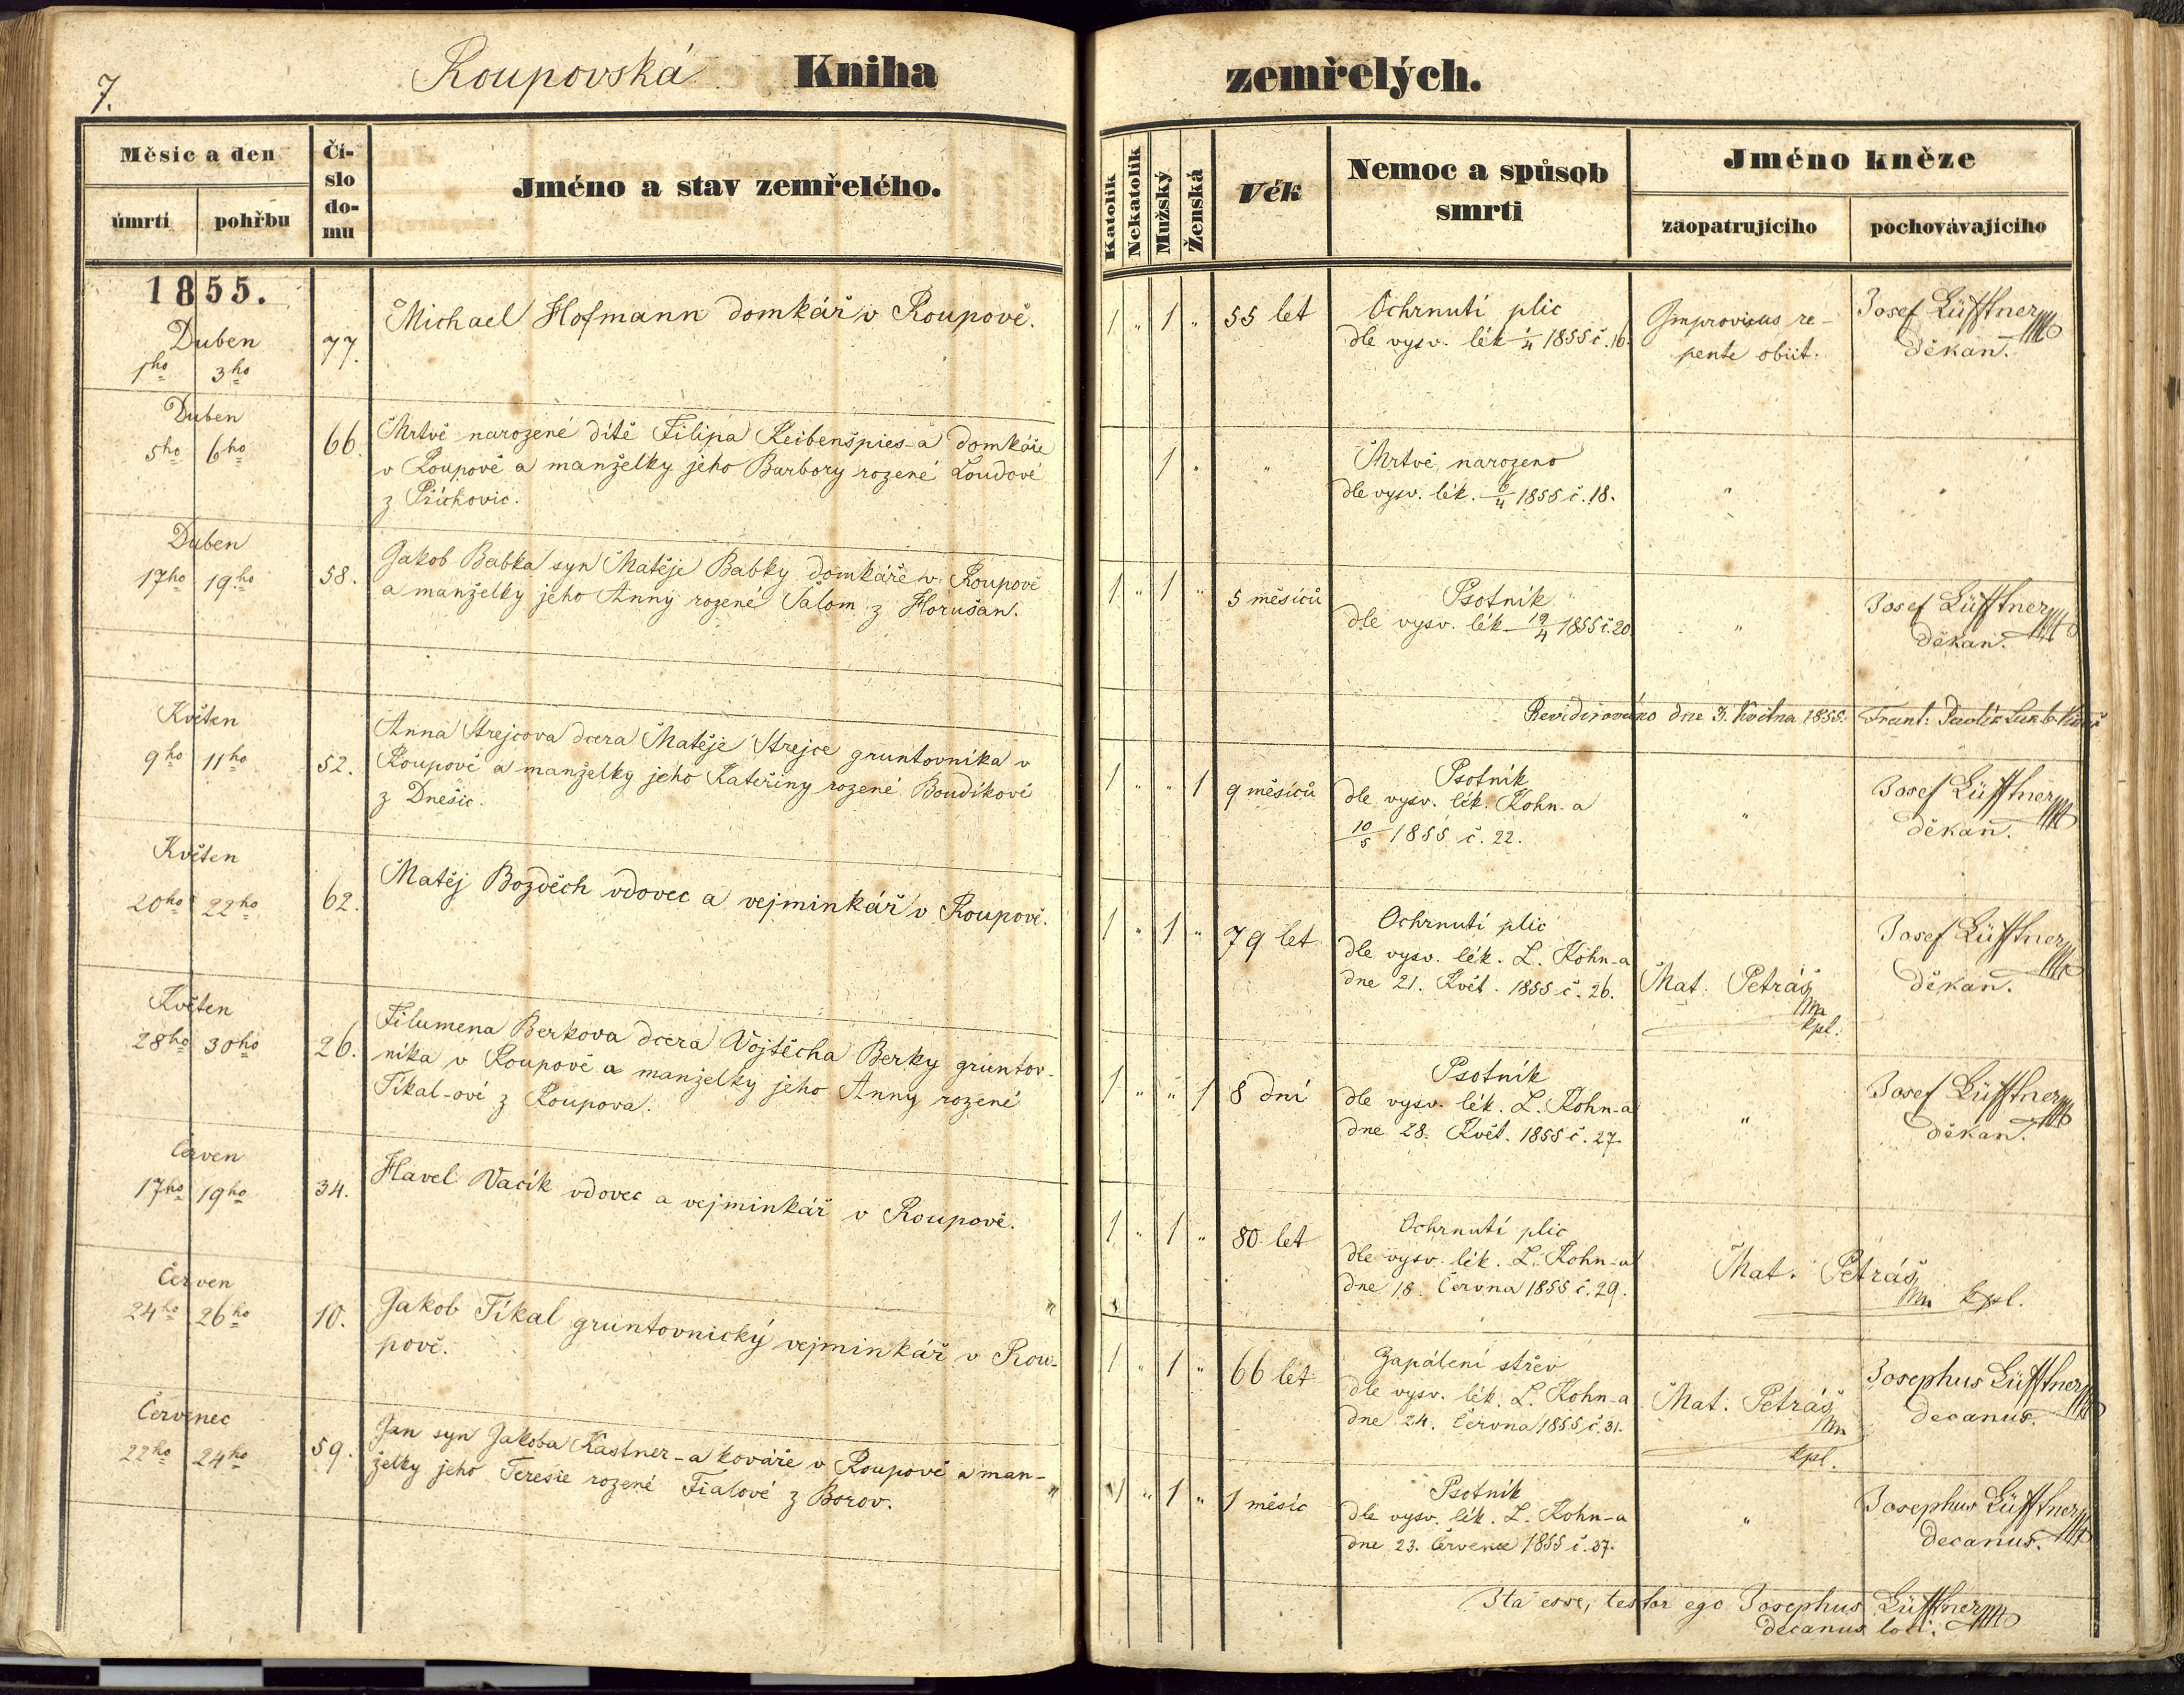 7.
Roupovská Kniha zemřelých.
Měsíc a den
úmrtí pohřbu
Čí-
slo
do-
mu
Jméno a stav zemřelého.
Katolík
Nekatolík
Mužský
Ženská
Věk
Nemoc a spůsob
smrti
Jméno kněze
zaopatrujícího pochovávajícího
1855.
Duben
1ho 3ho
77.
Michael Hofmann domkář v Roupově.
1 " 1 "
55 let
Ochrnutí plic
dle vysv. lék 1/4 1855 č. 16.
Improvisus re-
pente obiit.
Josef Lüfftner
děkan.
Duben
5ho 6ho
66.
Mrtvě narozené dítě Filipa Reibenšpies-a domkáře
v Roupově a manželky jeho Barbory rozené Loudové
z Příchovic.
1 "
"
Mrtvě narozeno
dle vysv. lék. 6/4 1855 č. 18.
"
"
Duben
17ho 19ho
58.
Jakob Babka syn Matěje Babky domkáře v Roupově
a manželky jeho Anny rozené Šalom z Horušan.
1 " 1 "
5 měsíců
Psotník
dle vysv. lék 19/4 1855 č. 20.
"
Josef Lüfftner
děkan.
Revidirováno dne 3. Května 1855. Frant: Pavlík
Květen
9ho 11ho
52.
Anna Strejcova dcera Matěje Strejce gruntovníka v
Roupově a manželky jeho Kateřiny rozené Boudíkové
z Dnešic.
1 " " 1
9 měsíců
Psotník
dle vysv. lék. Kohn-a
10/5 1855 č. 22.
"
Josef Lüfftner
děkan.
Květen
20ho 22ho
62.
Matěj Bozděch vdovec a vejminkář v Roupově.
1 " 1 "
79 let
Ochrnutí plic
dle vysv. lék. L. Kohn-a
dne 21. Květ. 1855 č. 26.
Mat. Petráš
mp
kpl.
Josef Lüfftner
děkan.
Květen
28ho 30ho
26.
Filumena Berkova dcera Vojtěcha Berky gruntov-
níka v Roupově a manželky jeho Anny rozené
Tikal-ové z Roupova.
1 " " 1
8 dní
Psotník
dle vysv. lék. L. Kohn-a
dne 28. Květ. 1855 č. 27.
"
Josef Lüfftner
děkan.
Červen
17ho 19ho
34.
Havel Vacík vdovec a vejminkář v Roupově.
1 " 1 "
80 let
Ochrnutí plic
dle vysv. lék. L. Kohn-a
dne 18. Června 1855 č. 29.
Mat. Petráš
mp kpl.
Červen
24ho 26ho
10.
Jakob Tíkal gruntovnický vejminkář v Rou-
pově.
1 " 1 "
66 let
Zapálení střev
dle vysv. lék. L. Kohn-a
dne 24. Června 1855 č. 31.
Mat. Petráš
mp
kpl.
Josephus Lüfftner
decanus.
Červenec
22ho 24ho
59.
Jan syn Jakoba Kastner-a kováře v Roupově a man-
želky jeho Teresie rozené Fialové z Borov.
1 " 1 "
1 měsíc
Psotník
dle vysv. lék. L. Kohn-a
dne 23. Července 1855 č. 37.
"
Josephus Lüfftner
decanus.
Ita esse, testor ego Josephus Lüfftner
decanus loci.